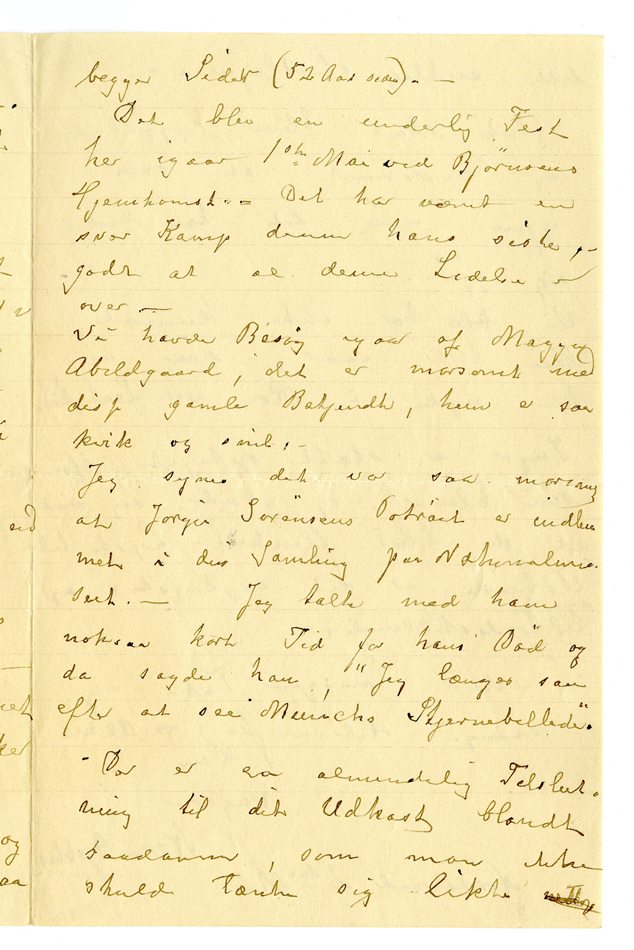 begge Sider (52 Aar siden). –
Det blev en underlig Fest
her igaar 1ste Mai ved Bjørnsens
Hjemkomst. – Det har været en
svær Kamp denne hans sidste, –
godt at al denne Lidelse er
over –
Vi havde Besøg igaar af Magga
Abildgaard, det er morsomt med
disse gamle Bekjendte, hun e saa
kvik og snil. –
Jeg synes det var saa morsomt
at Jørgen Sørensens Poträt er indlem
met i din Samling paa Nationalmu
seet. – Jeg talte med ham
noksaa kort Tid før hans Død og
da sagde han, "Jeg længes saa
efter at see Munchs Stjernebillede".
Der er en almindelig Tilslut-
ning til dit Udkast blandt
saadanne, som man ikke
skulde tænke sig likte
ud
et
ker
og
aa